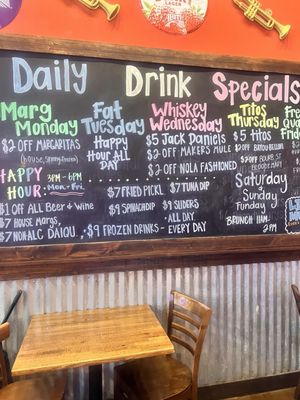 Daily Drink Specials
Marg
Monday
$2 OFF MARGARITAS
HAPPY 3PM - 6PM
HOUR: Mon-Fri.
$1 OFF ALL Beer + Wine
$7 House Margs,
$7 NON ALC DAIQU.
Fat
Tuesday
Happy
Hour All
DAY
$7 FRIED PICKL
$9 SPINACH DIP
$9 FROZEN DRINKS - EVERY DAY
Whiskey
Wednesday
$5 Jack Daniels
$2 OFF MAKERS MULE
$2 OFF NOLA FASHIONED
$7 TUNA DIP
$9 SLIDERS
ALL DAY
Titos
Thursday
$5 titos
$2 OFF
Saturday
&
Sunday
Funday
BRUNCH 11AM-
2PM